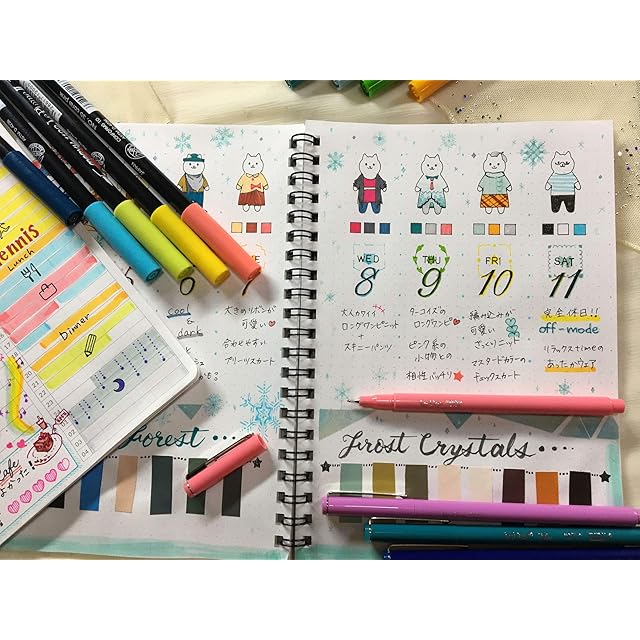 ennis
Lunch
Dinner
Cafe
cool
&
dark
大きめリボンが
可愛い
合わせやすい
プリーツスカート
Forest...
WED
8
大人カワイイ
ロングワンピニット
+
スキニーパンツ
THU
9
ターコイズの
ロングワンピ
ピンク系の
小物との
相性バッチリ
FRI
10
編み込みが
可愛い
ざっくりニット
マスタードカラーの
チェックスカート
SAT
11
完全休日!!
off-mode
リラックスtimeの
あったかウェア
Frost Crystals....